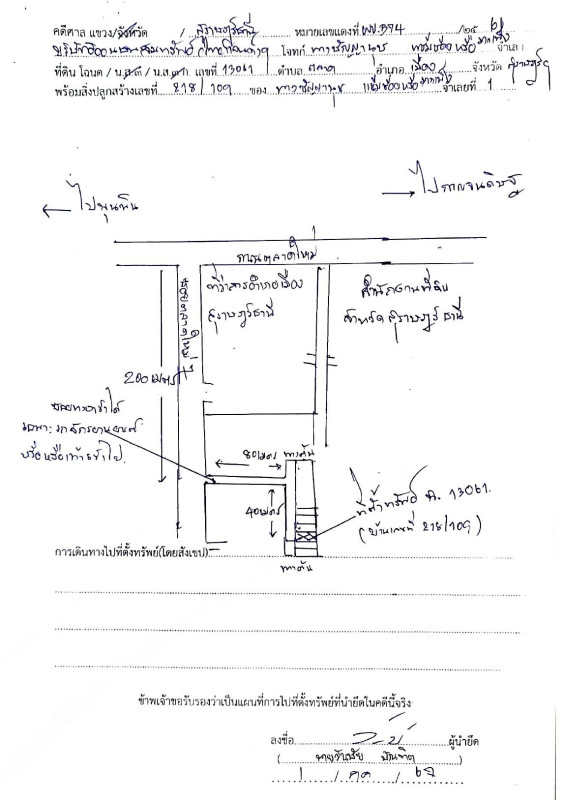 คดีศาล แขวง/จังหวัด / สุราษฎร์ธานี หมายเลขแดงที่ ผบ.394 /25 61
โจทก์ จำเลย
ที่ดิน โฉนด / น.ส.๓ / น.ส.๓ก. เลขที่ 13061 ตำบล ตลาด อำเภอ เมือง จังหวัด สุราษฎร์ฯ
พร้อมสิ่งปลูกสร้างเลขที่ 218/109 ของ จำเลยที่ 1
← ไปพุนพิน
→ ไปกาญจนดิษฐ์
ถนนตลาดใหม่
ซอยตลาดใหม่
ที่ว่าการอำเภอเมือง
สุราษฎร์ธานี
สำนักงานที่ดิน
จังหวัดสุราษฎร์ธานี
200 เมตร
ซอยทางเข้าได้
เฉพาะรถจักรยานยนต์
หรือเท้าเข้าไป
80 เมตร
ทางตัน
40 เมตร
ที่ตั้งทรัพย์ ฉ. 13061
(บ้านเลขที่ 218/109)
การเดินทางไปที่ตั้งทรัพย์(โดยสังเขป)
ทางตัน
ข้าพเจ้าขอรับรองว่าเป็นแผนที่การไปที่ตั้งทรัพย์ที่นำยึดในคดีนี้จริง
ลงชื่อ ผู้นำยึด
1 / ตค /